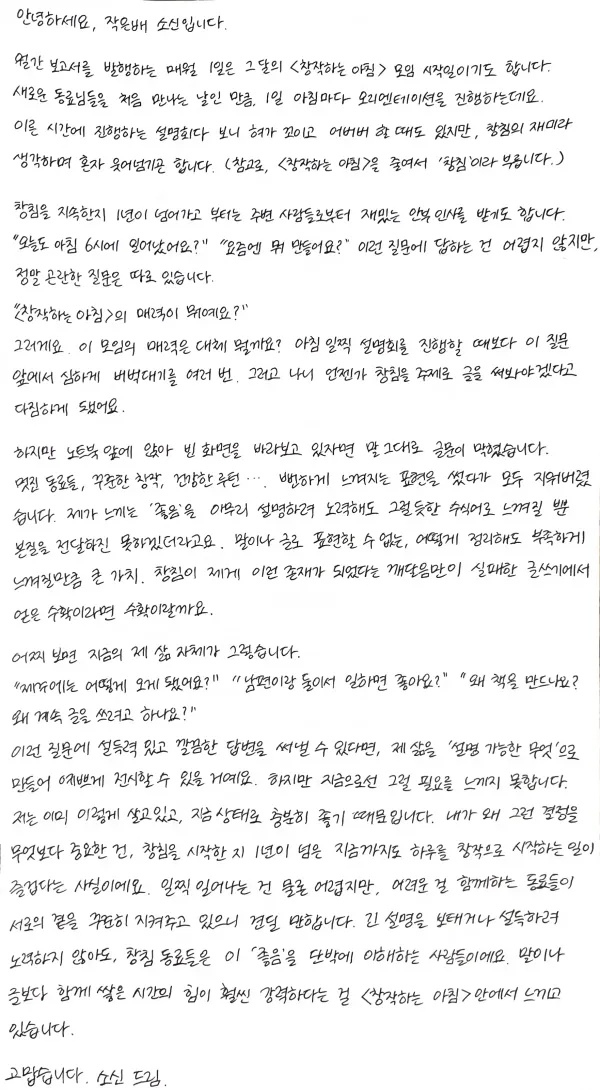 안녕하세요, 작은배 소신입니다.
월간 보고서를 발행하는 매월 1일은 그 달의 <창작하는 아침> 모임 시작일이기도 합니다.
새로운 동료님들을 처음 만나는 날인 만큼, 1일 아침마다 오리엔테이션을 진행하는데요.
이른 시간에 진행하는 설명회다 보니 혀가 꼬이고 어버버 할 때도 있지만, 창침의 재미라
생각하며 혼자 웃어넘기곤 합니다. (참고로, <창작하는 아침>을 줄여서 '창침'이라 부릅니다.)
창침을 지속한지 1년이 넘어가고 부터는 주변 사람들로부터 재밌는 안부 인사를 받기도 합니다.
"오늘도 아침 6시에 일어났어요?" "요즘엔 뭐 만들어요?" 이런 질문에 답하는 건 어렵지 않지만,
정말 곤란한 질문은 따로 있습니다.
"<창작하는 아침>의 매력이 뭐예요?"
그러게요. 이 모임의 매력은 대체 뭘까요? 아침 일찍 설명회를 진행할 때보다 이 질문
앞에서 심하게 버벅대기를 여러 번. 그러고 나니 언젠가 창침을 주제로 글을 써봐야겠다고
다짐하게 됐어요.
하지만 노트북 앞에 앉아 빈 화면을 바라보고 있자면 말 그대로 글문이 막혔습니다.
멋진 동료들, 꾸준한 창작, 건강한 루틴 …. 뻔하게 느껴지는 표현을 썼다가 모두 지워버렸
습니다. 제가 느끼는 '좋음'을 아무리 설명하려 노력해도 그럴듯한 수식어로 느껴질 뿐
본질을 전달하진 못하겠더라고요. 말이나 글로 표현할 수 없는, 어떻게 정리해도 부족하게
느껴질만큼 큰 가치. 창침이 제게 이런 존재가 되었다는 깨달음만이 실패한 글쓰기에서
얻은 수확이라면 수확이랄까요.
어찌 보면 지금의 제 삶 자체가 그렇습니다.
"제주에는 어떻게 오게 됐어요?" "남편이랑 둘이서 일하면 좋아요?" "왜 책을 만드나요?
왜 계속 글을 쓰려고 하나요?"
이런 질문에 설득력 있고 깔끔한 답변을 써낼 수 있다면, 제 삶을 '설명 가능한 무엇'으로
만들어 예쁘게 전시할 수 있을 거예요. 하지만 지금으로선 그럴 필요를 느끼지 못합니다.
저는 이미 이렇게 살고 있고, 지금 상태로 충분히 좋기 때문입니다. 내가 왜 그런 결정을
무엇보다 중요한 건, 창침을 시작한 지 1년이 넘은 지금까지도 하루를 창작으로 시작하는 일이
즐겁다는 사실이에요. 일찍 일어나는 건 물론 어렵지만, 어려운 걸 함께하는 동료들이
서로의 곁을 꾸준히 지켜주고 있으니 견딜 만합니다. 긴 설명을 보태거나 설득하려
노력하지 않아도, 창침 동료들은 이 '좋음'을 단박에 이해하는 사람들이에요. 말이나
글보다 함께 쌓은 시간의 힘이 훨씬 강력하다는 걸 <창작하는 아침> 안에서 느끼고
있습니다.
고맙습니다. 소신 드림.